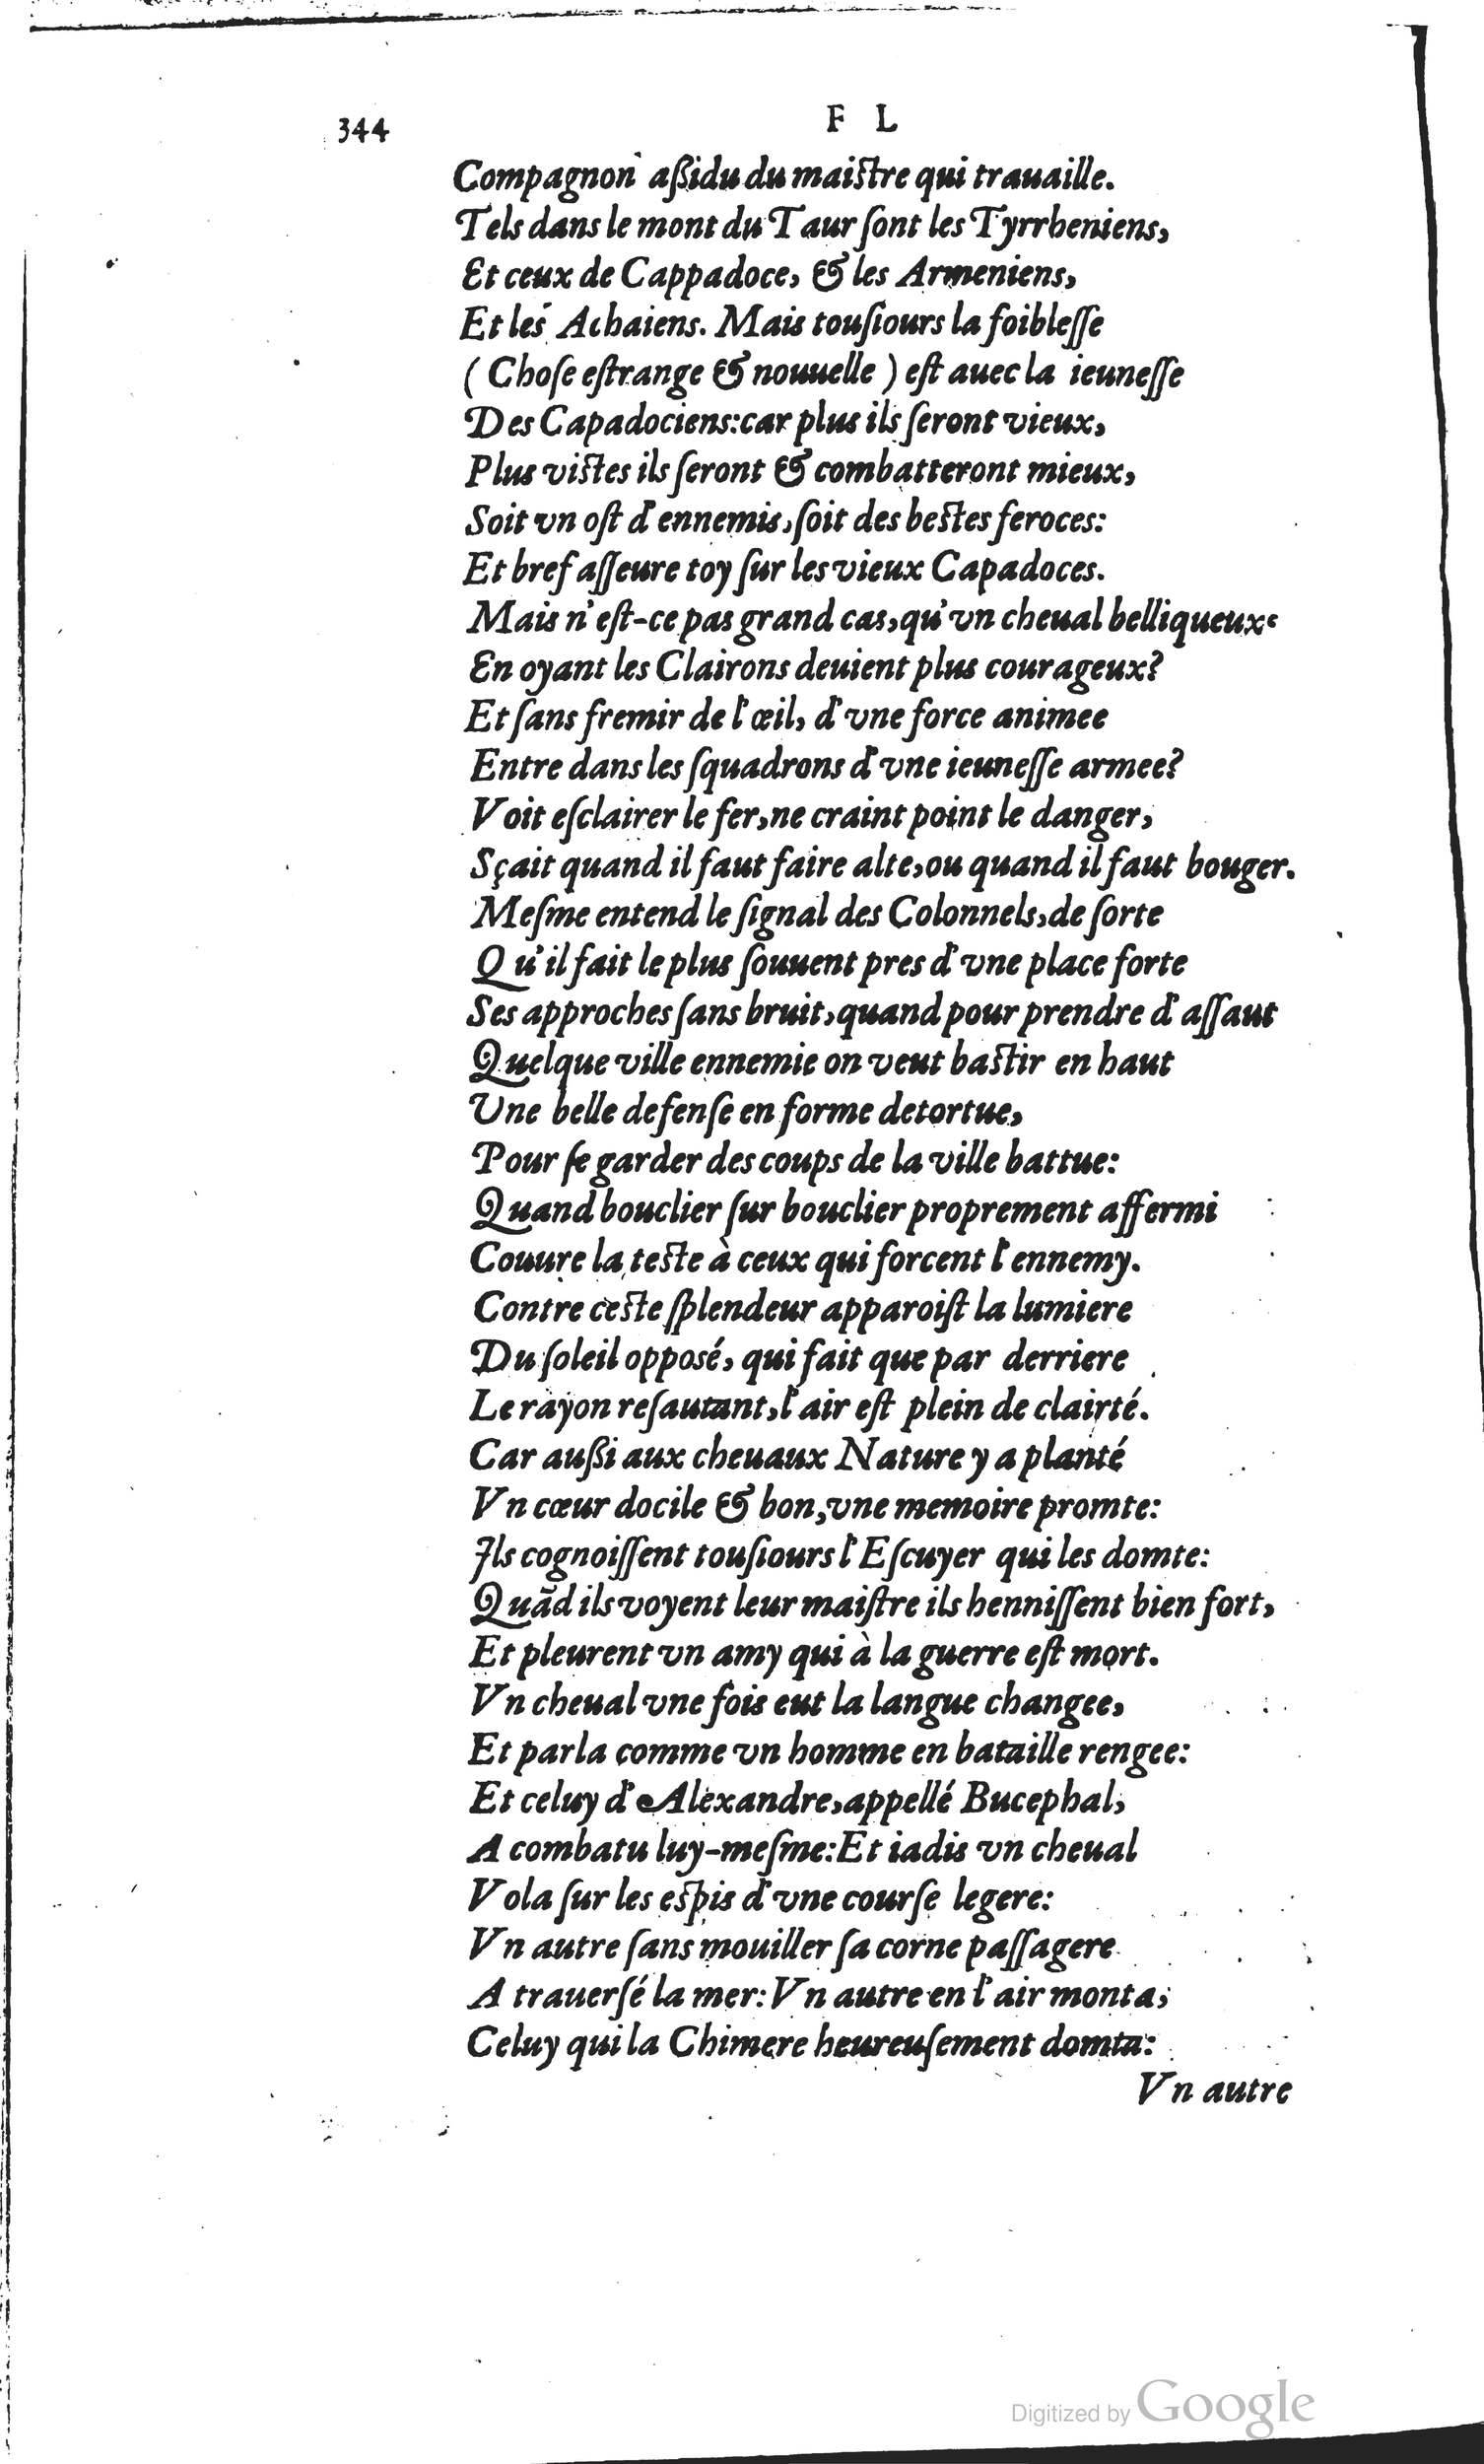 344
F L
Compagnon aßidu du maiſtre qui trauaille.
Tels dans le mont du Taur ſont les Tyrrheniens,
Et ceux de Cappadoce, & les Armeniens,
Et les Achaiens. Mais touſiours la foibleſſe
( Choſe eſtrange & nouuelle ) eſt auec la ieuneſſe
Des Capadociens: car plus ils ſeront vieux,
Plus viſtes ils ſeront & combatteront mieux,
Soit vn oſt d'ennemis, ſoit des beſtes feroces:
Et bref aſſeure toy ſur les vieux Capadoces.
Mais n'eſt-ce pas grand cas, qu'vn cheual belliqueux
En oyant les Clairons deuient plus courageux?
Et ſans fremir de l'œil, d'vne force animee
Entre dans les ſquadrons d'vne ieuneſſe armee?
Voit eſclairer le fer, ne craint point le danger,
Sçait quand il faut faire alte, ou quand il faut bouger.
Meſme entend le ſignal des Colonnels, de ſorte
Qu'il fait le plus ſouuent pres d'vne place forte
Ses approches ſans bruit, quand pour prendre d'aſſaut
Quelque ville ennemie on veut baſtir en haut
Une belle defenſe en forme de tortue,
Pour ſe garder des coups de la ville battue:
Quand bouclier ſur bouclier proprement affermi
Couure la teſte à ceux qui forcent l'ennemy.
Contre ceſte ſplendeur apparoiſt la lumiere
Du ſoleil opposé, qui fait que par derriere
Le rayon reſautant, l'air eſt plein de clairté.
Car außi aux cheuaux Nature y a planté
Vn cœur docile & bon, vne memoire promte:
Ils cognoiſſent touſiours l'Eſcuyer qui les domte:
Quãd ils voyent leur maiſtre ils henniſſent bien fort,
Et pleurent vn amy qui à la guerre eſt mort.
Vn cheual vne fois eut la langue changee,
Et parla comme vn homme en bataille rengee:
Et celuy d'Alexandre, appellé Bucephal,
A combatu luy-meſme: Et iadis vn cheual
Vola ſur les eſpis d'vne courſe legere:
Vn autre ſans mouiller ſa corne paſſagere
A trauerſé la mer: Vn autre en l'air monta,
Celuy qui la Chimere heureuſement domta:
Vn autre
Digitized by Google